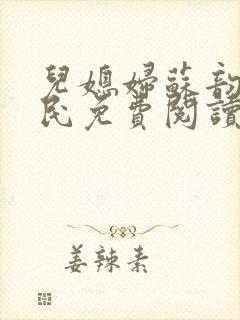 兒媳婦蘇韵
民免費閱讀
姜辣素